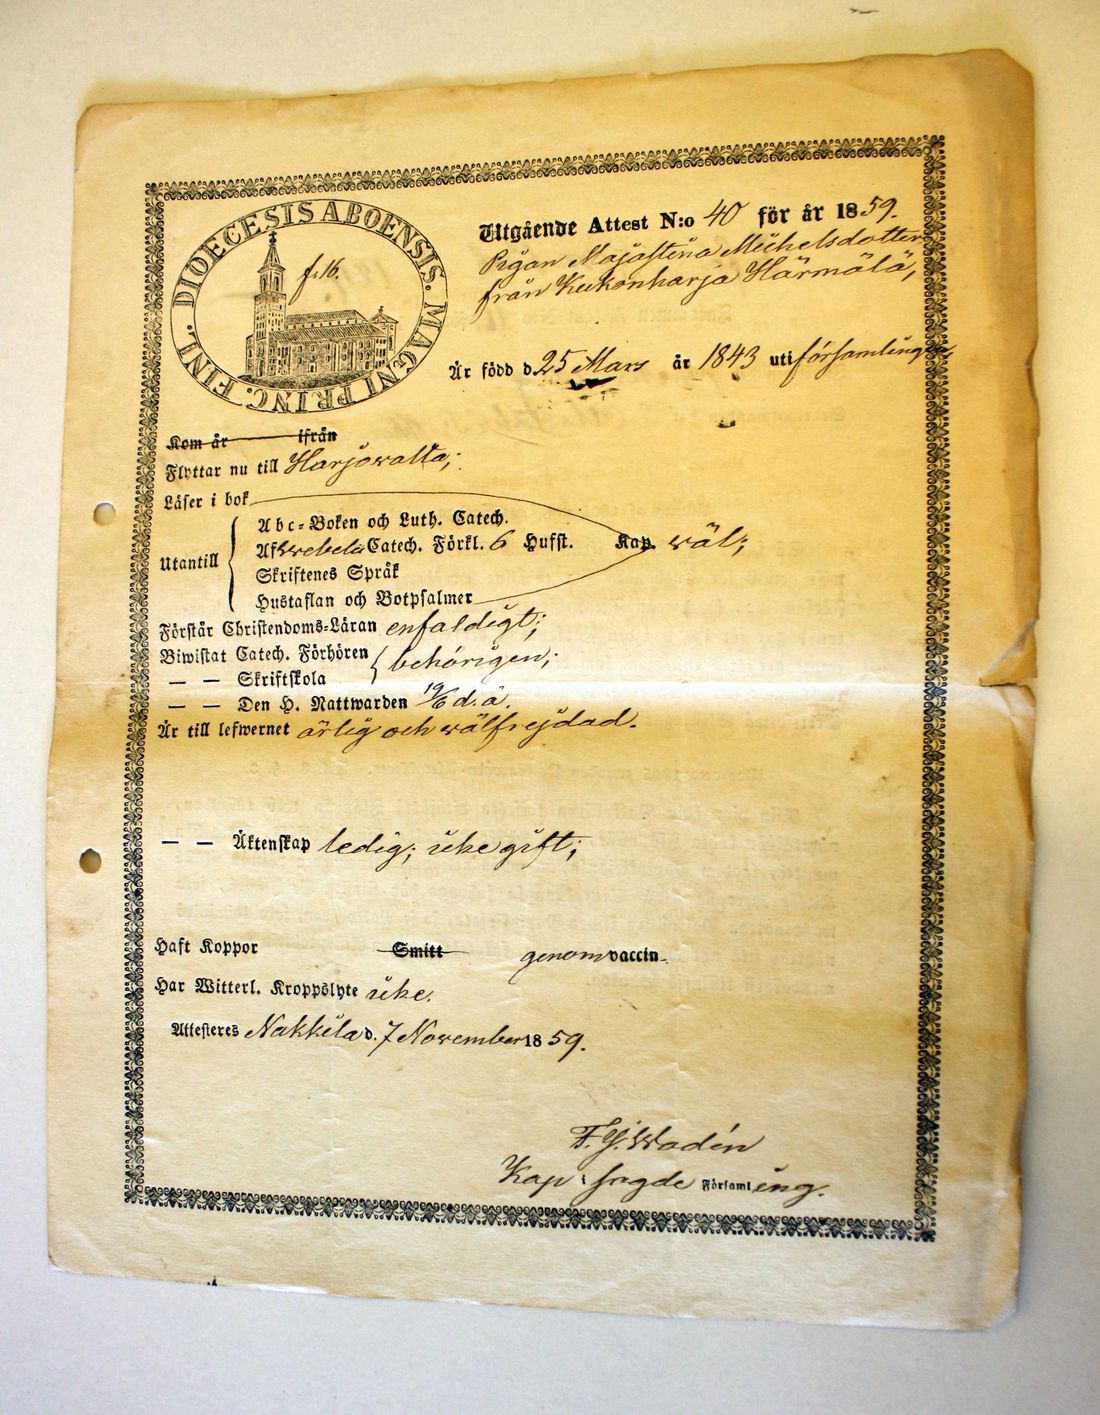 DIOECESIS ABOENSIS. MAGNI PRINC. FINL.
f. 16.
Utgående Attest N:o 40 för år 1859.
Pigan Majastina Michelsdotter
från Kukonharja Härmälä,
Är född d. 25 Mars år 1843 uti församlingen
Kom år ifrån
Flyttar nu till Harjawalta;
Läser i bok
Abc-Boken och Luth. Catech.
Utantill Afswebels Catech. Förkl. 6 Hufst. Kap. wäl;
Skriftenes Språk
Hustaflan och Botpsalmer
Förstår Christendoms-Läran enfaldigt;
Biwistat Catech. Förhören behörigen;
— — Skriftskola
— — Den H. Nattwarden 19/6 d. å.
Är till lefwernet ärlig och wälfrejdad.
— — Äktenskap ledig; icke gift;
Haft Koppor Smitt genom vaccin.
Har Witterl. Kroppslyte icke.
Attesteres Nakkila d. 7 November 1859.
F. J. Wadén
Kap. i sagde Församling.